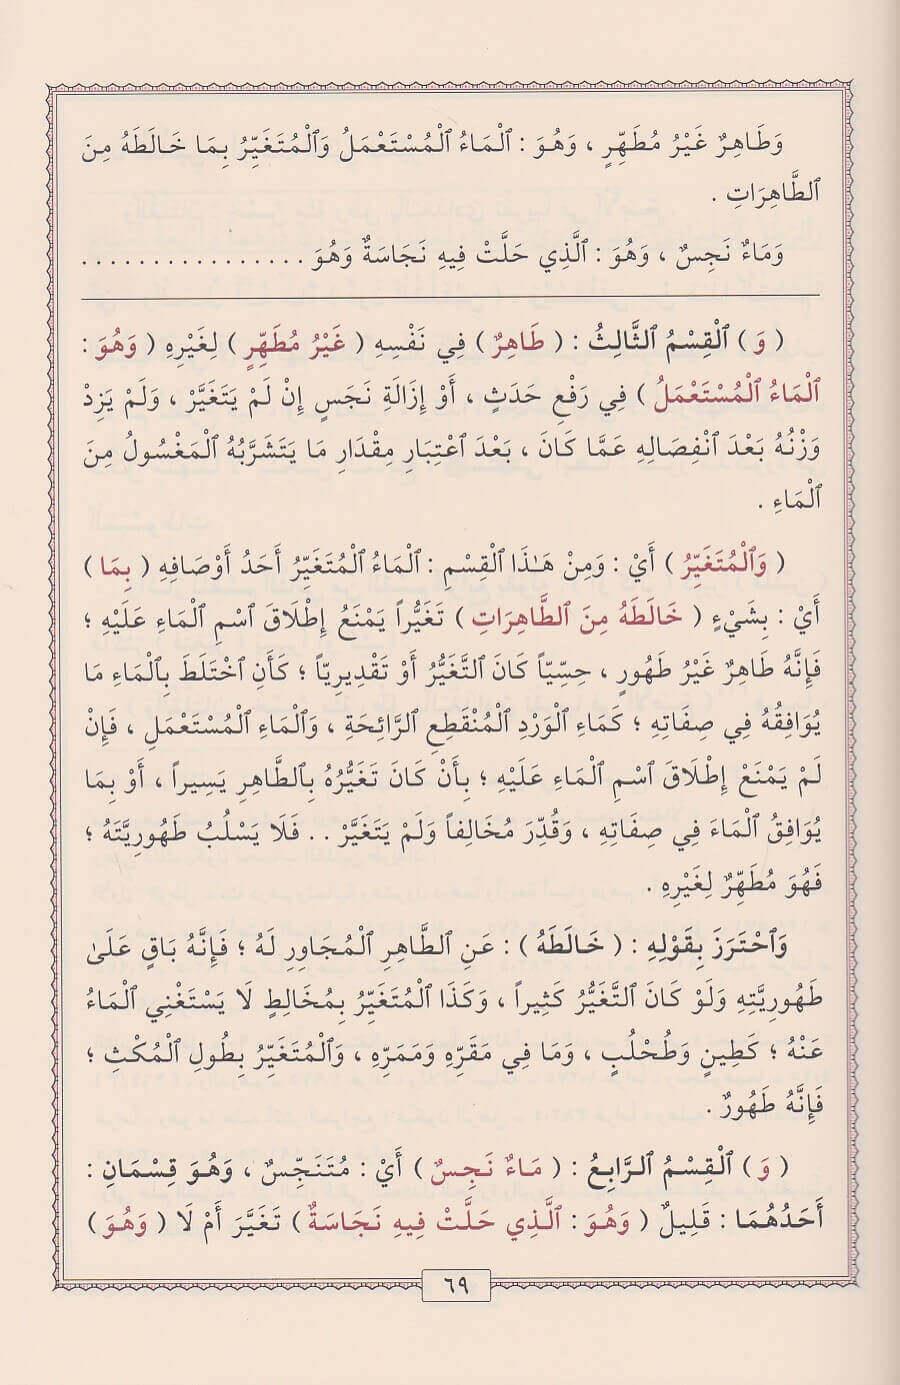 وَطَاهِرٌ غَيْرُ مُطَهِّرٍ ، وَهُوَ : ٱلْمَاءُ ٱلْمُسْتَعْمَلُ وَٱلْمُتَغَيِّرُ بِمَا خَالَطَهُ مِنَ
ٱلطَّاهِرَاتِ .
وَمَاءٌ نَجِسٌ ، وَهُوَ : ٱلَّذِي حَلَّتْ فِيهِ نَجَاسَةٌ وَهُوَ ................
( وَ ) ٱلْقِسْمُ ٱلثَّالِثُ : ( طَاهِرٌ ) فِي نَفْسِهِ ( غَيْرُ مُطَهِّرٍ ) لِغَيْرِهِ ( وَهُوَ :
ٱلْمَاءُ ٱلْمُسْتَعْمَلُ ) فِي رَفْعِ حَدَثٍ ، أَوْ إِزَالَةِ نَجَسٍ إِنْ لَمْ يَتَغَيَّرْ ، وَلَمْ يَزِدْ
وَزْنُهُ بَعْدَ ٱنْفِصَالِهِ عَمَّا كَانَ ، بَعْدَ ٱعْتِبَارِ مِقْدَارِ مَا يَتَشَرَّبُهُ ٱلْمَغْسُولُ مِنَ
ٱلْمَاءِ .
( وَٱلْمُتَغَيِّرُ ) أَيْ : وَمِنْ هَـٰذَا ٱلْقِسْمِ : ٱلْمَاءُ ٱلْمُتَغَيِّرُ أَحَدُ أَوْصَافِهِ ( بِمَا )
أَيْ : بِشَيْءٍ ( خَالَطَهُ مِنَ ٱلطَّاهِرَاتِ ) تَغَيُّراً يَمْنَعُ إِطْلَاقَ ٱسْمِ ٱلْمَاءِ عَلَيْهِ ؛
فَإِنَّهُ طَاهِرٌ غَيْرُ طَهُورٍ ، حِسِّيّاً كَانَ ٱلتَّغَيُّرُ أَوْ تَقْدِيرِيّاً ؛ كَأَنِ ٱخْتَلَطَ بِٱلْمَاءِ مَا
يُوَافِقُهُ فِي صِفَاتِهِ ؛ كَمَاءِ ٱلْوَرْدِ ٱلْمُنْقَطِعِ ٱلرَّائِحَةِ ، وَٱلْمَاءِ ٱلْمُسْتَعْمَلِ ، فَإِنْ
لَمْ يَمْنَعْ إِطْلَاقَ ٱسْمِ ٱلْمَاءِ عَلَيْهِ ؛ بِأَنْ كَانَ تَغَيُّرُهُ بِٱلطَّاهِرِ يَسِيراً ، أَوْ بِمَا
يُوَافِقُ ٱلْمَاءَ فِي صِفَاتِهِ ، وَقُدِّرَ مُخَالِفاً وَلَمْ يَتَغَيَّرْ .. فَلَا يَسْلُبُ طَهُورِيَّتَهُ ؛
فَهُوَ مُطَهِّرٌ لِغَيْرِهِ .
وَٱحْتَرَزَ بِقَوْلِهِ : ( خَالَطَهُ ) : عَنِ ٱلطَّاهِرِ ٱلْمُجَاوِرِ لَهُ ؛ فَإِنَّهُ بَاقٍ عَلَىٰ
طَهُورِيَّتِهِ وَلَوْ كَانَ ٱلتَّغَيُّرُ كَثِيراً ، وَكَذَا ٱلْمُتَغَيِّرُ بِمُخَالِطٍ لَا يَسْتَغْنِي ٱلْمَاءُ
عَنْهُ ؛ كَطِينٍ وَطُحْلُبٍ ، وَمَا فِي مَقَرِّهِ وَمَمَرِّهِ ، وَٱلْمُتَغَيِّرُ بِطُولِ ٱلْمُكْثِ ؛
فَإِنَّهُ طَهُورٌ .
( وَ ) ٱلْقِسْمُ ٱلرَّابِعُ : ( مَاءٌ نَجِسٌ ) أَيْ : مُتَنَجِّسٌ ، وَهُوَ قِسْمَانِ :
أَحَدُهُمَا : قَلِيلٌ ( وَهُوَ : ٱلَّذِي حَلَّتْ فِيهِ نَجَاسَةٌ ) تَغَيَّرَ أَمْ لَا ( وَهُوَ )
٦٩